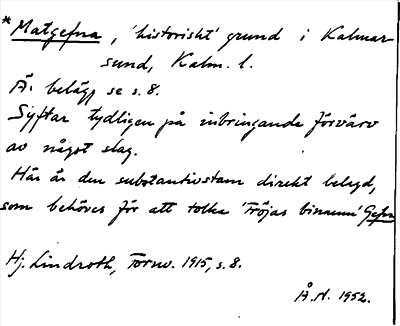 *Matgefna, 'historiskt' grund i Kalmar-
sund, Kalm. l.
Ä. belägg se s. 8.
Syftar tydligen på inbringande förvärv
av något slag.
Här är den substantivstam direkt belagd,
som behöves för att tolka Fröjas binamn Gefn
Hj. Lindroth, Fornv. 1915, s. 8.
Å. N. 1952.